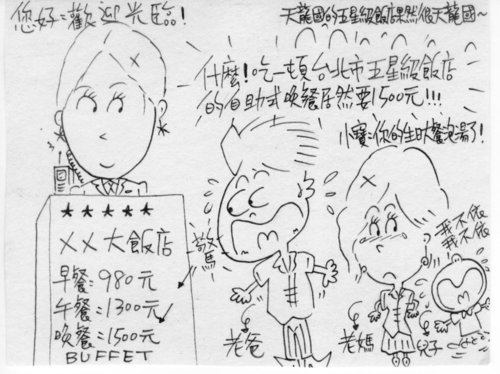 您好:歡迎光臨!
天龍國的五星級飯店果然很天龍國~
什麼!吃一頓台北市五星級飯店
的自助式晚餐居然要1500元!!!
小寶:你的生日大餐泡湯了!
我不依
我不依
驚
★★★★★
XX大飯店
早餐:980元
午餐:1300元
晚餐:1500元
BUFFET
老爸
老媽
兒子